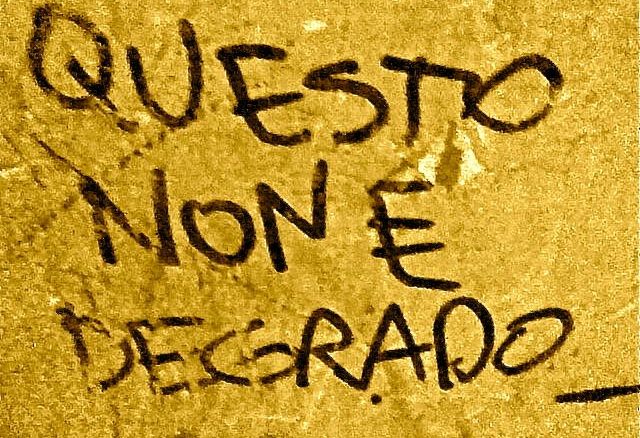 QUESTO
NON E
DEGRADO_